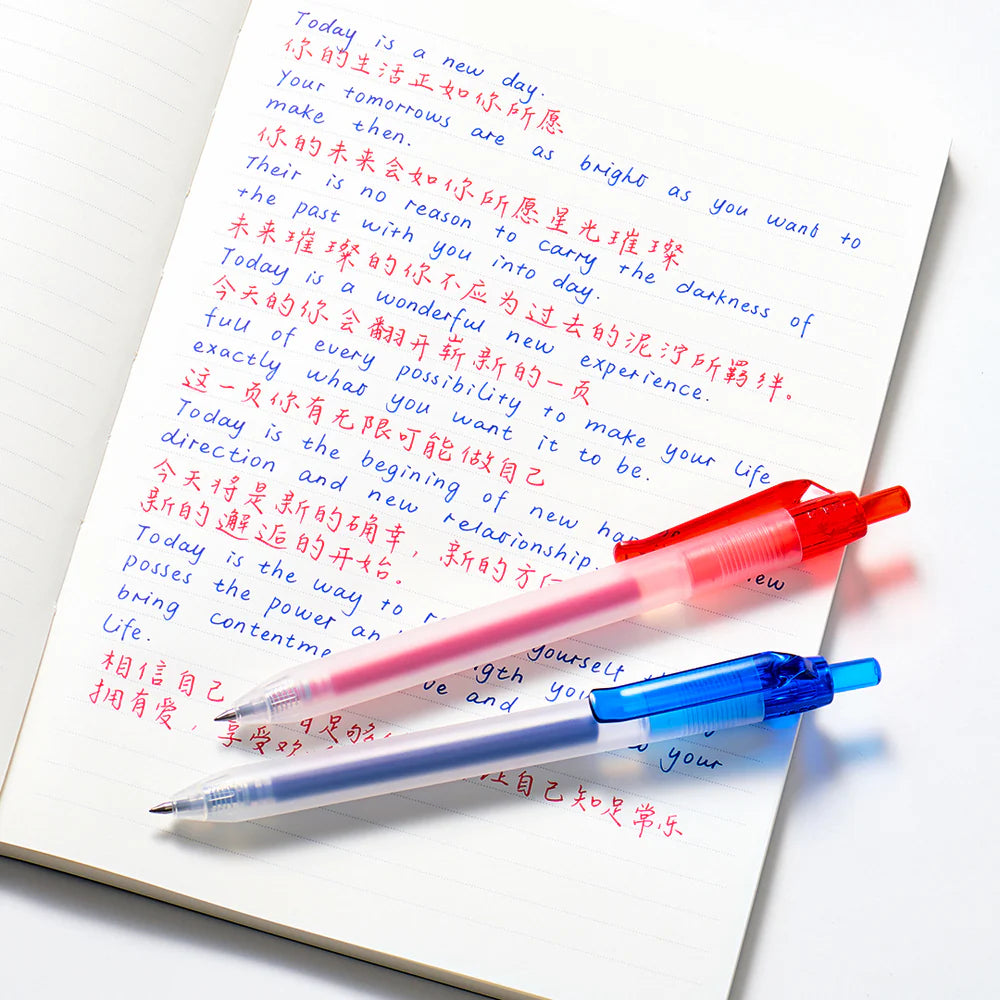 Today is a new day.
你的生活正如你所愿
Your tomorrows are as bright as you want to
make then.
你的未来会如你所愿星光璀璨
Their is no reason to carry the darkness of
the past with you into day.
未来璀璨的你不应为过去的泥泞所羁绊。
Today is a wonderful new experience.
今天的你会翻开崭新的一页
full of every possibility to make your life
exactly what you want it to be.
这一页你有无限可能做自己
Today is the begining of new
direction and new relationship. new
今天将是新的确幸，新的方
新的邂逅的开始.
Today is the way to yourself
posses the power
bring
life.
相信自己 足够
拥有爱，享受欢 自己知足常乐
and
your